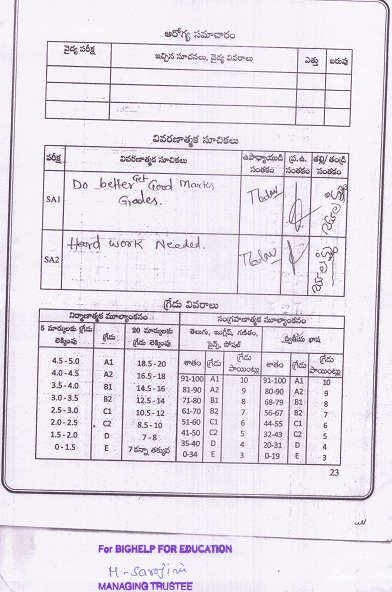 ఆరోగ్య సమాచారం
వైద్య పరీక్ష ఇచ్చిన సూచనలు, వైద్య వివరాలు ఎత్తు బరువు
వివరణాత్మక సూచికలు
పరీక్ష వివరణాత్మక సూచికలు ఉపాధ్యాయుడి సంతకం ప్ర.ఉ. సంతకం తల్లి/ తండ్రి సంతకం
SA1 Do better Get Good Marks
Grades.
SA2 Hard work Needed.
గ్రేడు వివరాలు
నిర్మాణాత్మక మూల్యాంకనం సంగ్రహణాత్మక మూల్యాంకనం
5 మార్కులకు గ్రేడు లెక్కింపు గ్రేడు 20 మార్కులకు గ్రేడు లెక్కింపు తెలుగు, ఇంగ్లీష్, గణితం, సైన్స్, సోషల్ ద్వితీయ భాష
శాతం గ్రేడు గ్రేడు పాయింట్లు శాతం గ్రేడు గ్రేడు పాయింట్లు
4.5-5.0 A1 18.5-20 91-100 A1 10 91-100 A1 10
4.0-4.5 A2 16.5-18 81-90 A2 9 80-90 A2 9
3.5-4.0 B1 14.5-16 71-80 B1 8 68-79 B1 8
3.0-3.5 B2 12.5-14 61-70 B2 7 56-67 B2 7
2.5-3.0 C1 10.5-12 51-60 C1 6 44-55 C1 6
2.0-2.5 C2 8.5-10 41-50 C2 5 32-43 C2 5
1.5-2.0 D 7-8 35-40 D 4 20-31 D 4
0-1.5 E 7 కన్నా తక్కువ 0-34 E 3 0-19 E 3
23
For BIGHELP FOR EDUCATION
M. Sarojini
MANAGING TRUSTEE